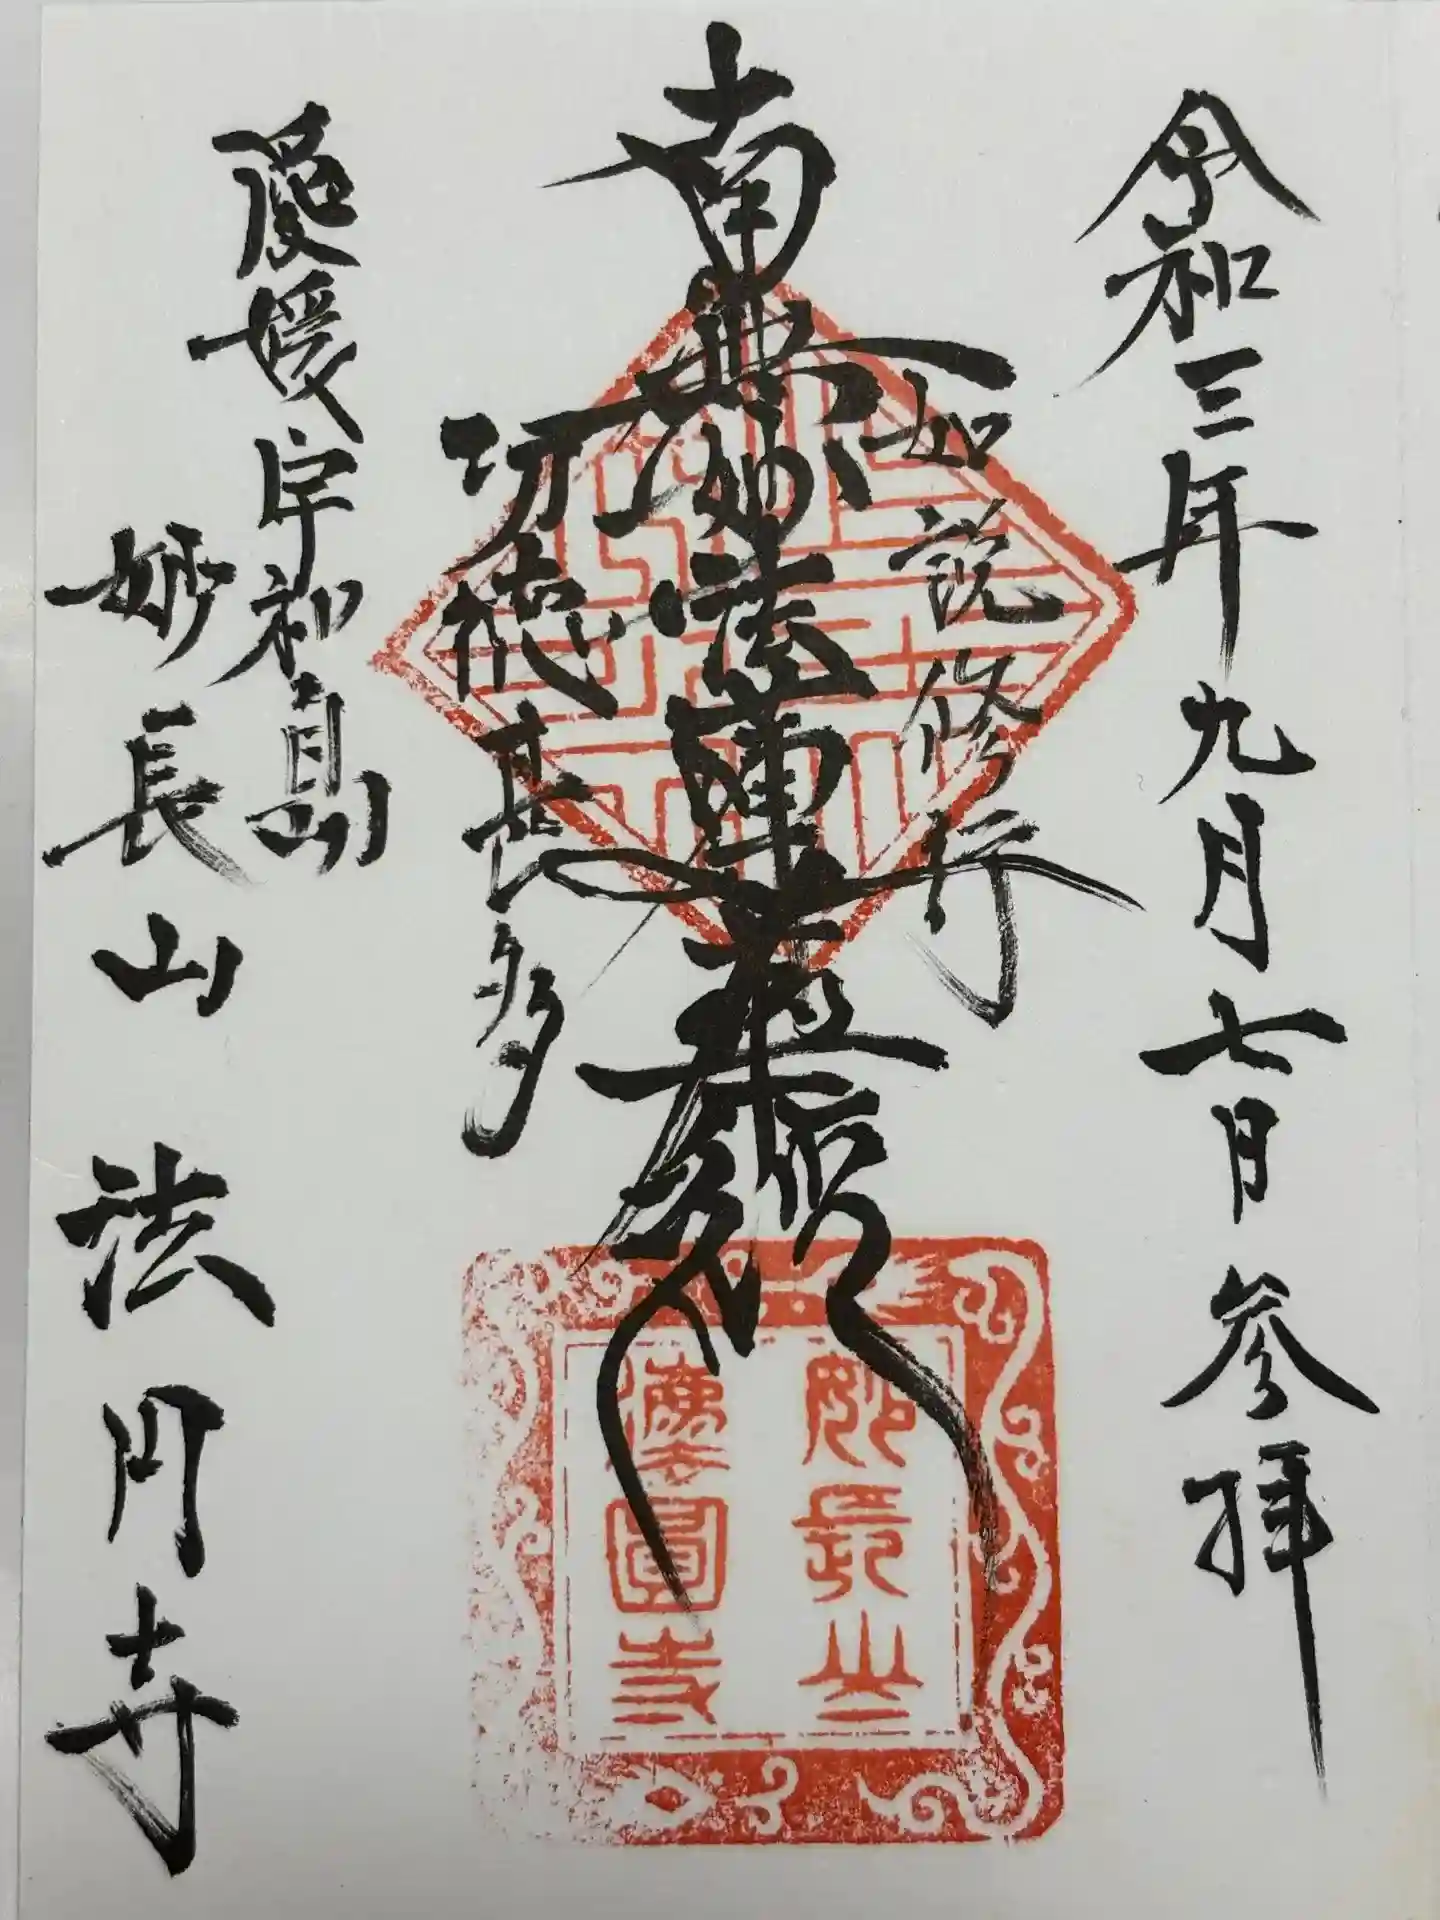 令和三年九月七日参拝
如説修行
南無妙法蓮華経
功徳甚多
愛媛宇和島
妙長山 法円寺
妙長山
法圓寺